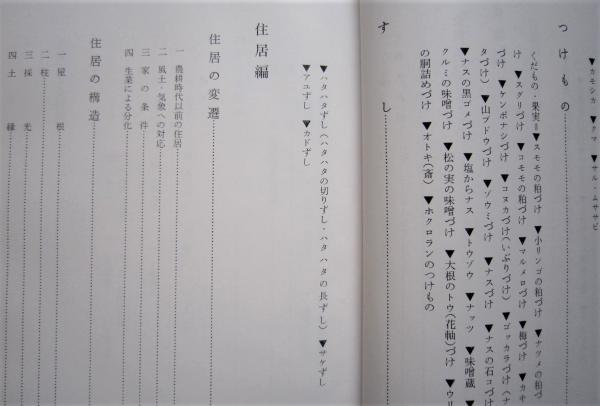 ▼カモシカ ▼クマ ▼サル・ムササビ
つけもの
くだもの・果実＝▼スモモの粕づけ ▼小リンゴの粕づけ ▼ナツメの粕づ
け ▼スグリづけ ▼コモモの粕づけ ▼マルメロづけ ▼梅づけ ▼カキ
づけ ▼ケンポナシづけ ▼コヌカづけ（いぶりづけ） ▼ゴッカラづけ（ナ
タづけ） ▼山ブドウづけ ▼ゾウミづけ ▼ナスづけ ▼ナスの石コづけ
▼ナスの黒ゴメづけ ▼塩からナス ▼トウゾウ ▼ナッツ ▼味噌蔵
クルミの味噌づけ ▼松の実の味噌づけ ▼大根のトウ（花軸）づけ ▼ウリ
の胴詰めづけ ▼オトキ（斎） ▼ホクロランのつけもの
すし
▼ハタハタずし（ハタハタの切りずし・ハタハタの長ずし） ▼サケずし
▼アユずし ▼カドずし
住居編
住居の変遷
一 農耕時代以前の住居
二 風土・気象への対応
三 家の条件
四 生業による分化
住居の構造
一 屋根
二 柱
三 採光
四 土縁